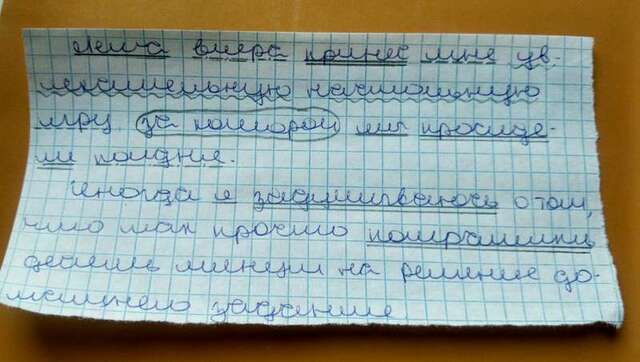 Леша вчера принес мне ув-
лекательную настольную
игру за которой мы просиде-
ли полдня.
Иногда я задумываюсь о том,
что так просто потратить
десять минут на решение до-
машнего задания